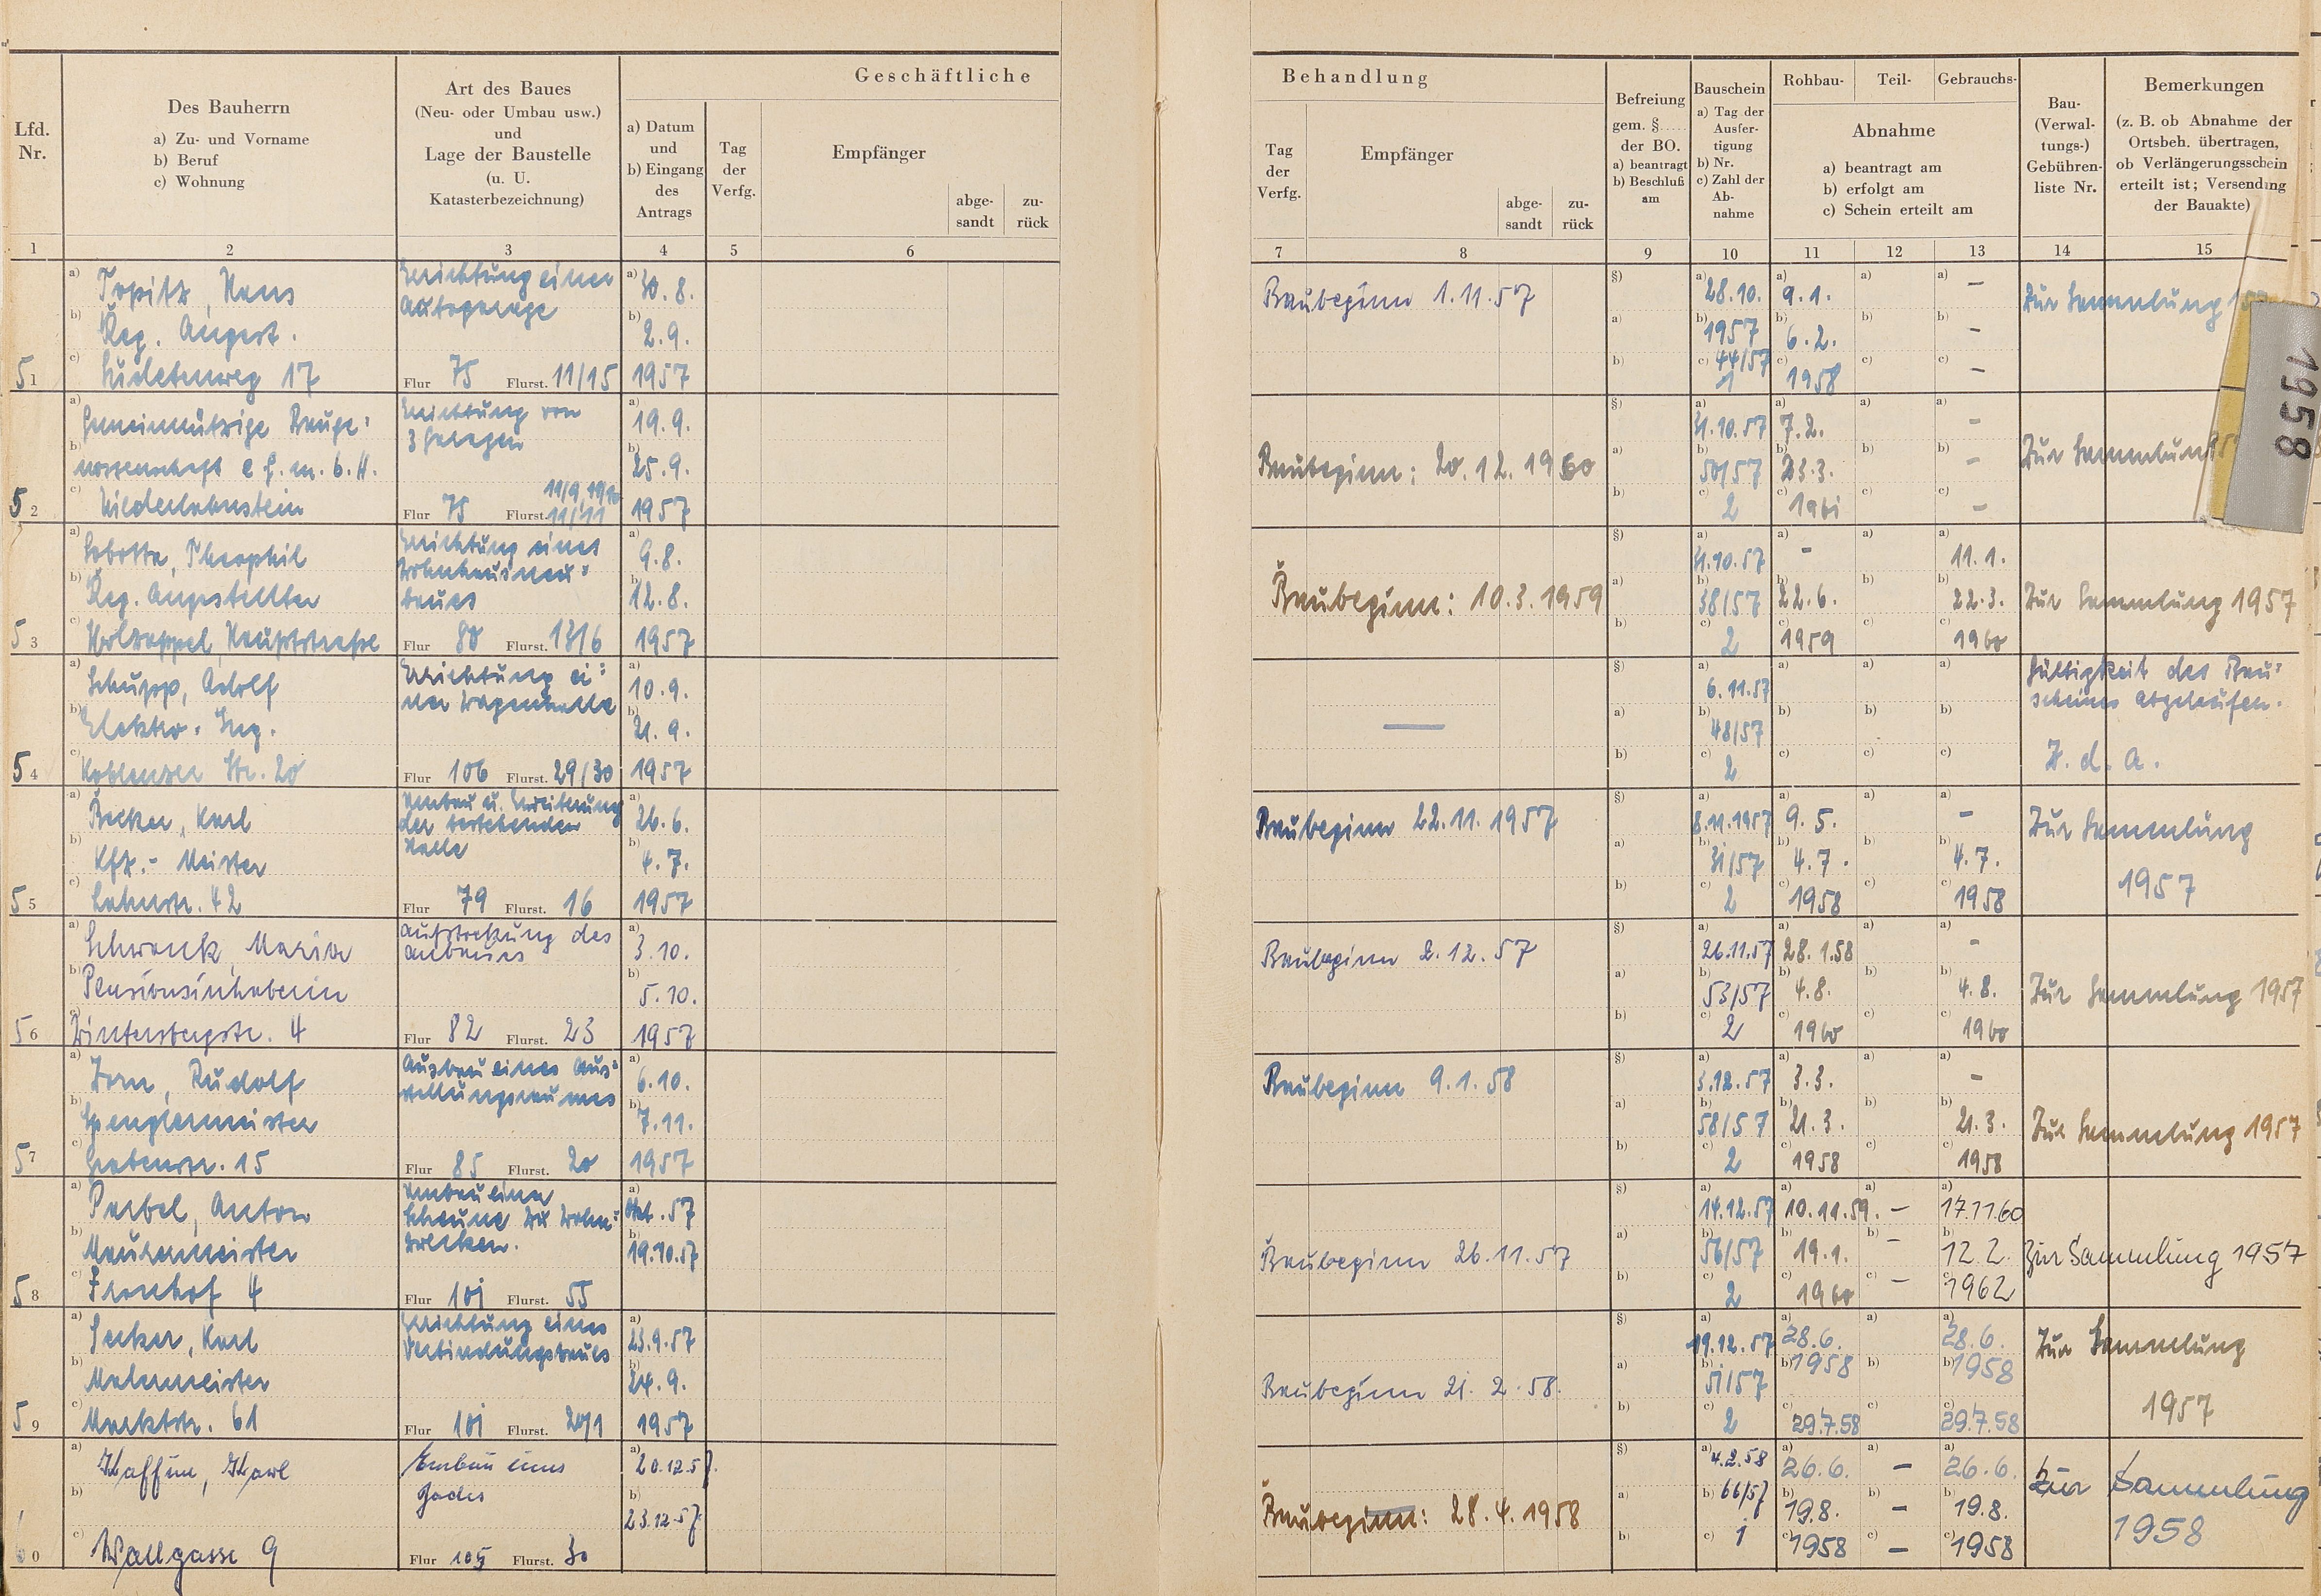 Geschäftliche
Behandlung
Lfd.
Nr.
Des Bauherrn
a) Zu- und Vorname
b) Beruf
c) Wohnung
Art des Baues
(Neu- oder Umbau usw.)
und
Lage der Baustelle
(u. U.
Katasterbezeichnung)
a) Datum
und
b) Eingang
des
Antrags
Tag
der
Verfg.
Empfänger
abge-
sandt
zu-
rück
Tag
der
Verfg.
Empfänger
abge-
sandt
zu-
rück
Befreiung
gem. §.....
der BO.
a) beantragt
b) Beschluß
am
Bauschein
a) Tag der
Ausfer-
tigung
b) Nr.
c) Zahl der
Ab-
nahme
Rohbau-
Teil-
Gebrauchs-
Abnahme
a) beantragt am
b) erfolgt am
c) Schein erteilt am
Bau-
(Verwal-
tungs-)
Gebühren-
liste Nr.
Bemerkungen
(z. B. ob Abnahme der
Ortsbeh. übertragen,
ob Verlängerungsschein
erteilt ist; Versendung
der Bauakte)
1 2 3 4 5 6 7 8 9 10 11 12 13 14 15
51
a) Topitz, Hans
b) Reg. Angest.
c) Sudetenweg 17
Errichtung einer
Autogarage
Flur 75 Flurst. 11/15
a) 30. 8.
b) 2. 9.
1957
Baubeginn 1.11.57
§)
a)
b)
a) 28.10.
b) 1957
c) 44/57
1
a) 9.1.
b) 6.2.
c) 1958
a)
b)
c)
a) –
b) –
c) –
Zur Sammlung
1958
52
a) Gemeinnützige Bauge=
b) nossenschaft e.G.m.b.H.
c) Niederlahnstein
Errichtung von
3 Garagen
Flur 75 Flurst. 11/9, 11/10
11/11
a) 19.9.
b) 25.9.
1957
Baubeginn: 20.12.1960
§)
a)
b)
a) 31.10.57
b) 50/57
c) 2
a) 7.2.
b) 23.3.
c) 1961
a)
b)
c)
a) –
b) –
c) –
Zur Sammlung
53
a) Sobotta, Theophil
b) Reg. Angestellter
c) Holzappel, Hauptstraße
Errichtung eines
Wohnhausneu=
baues
Flur 80 Flurst. 1316
a) 9.8.
b) 12.8.
1957
Baubeginn: 10.3.1959
§)
a)
b)
a) 31.10.57
b) 38/57
c) 2
a) –
b) 22.6.
c) 1959
a)
b)
c)
a) 11.1.
b) 22.3.
c) 1960
Zur Sammlung 1957
54
a) Schupp, Adolf
b) Elektro-Ing.
c) Koblenzer Str. 20
Errichtung ei=
ner Wagenhalle
Flur 106 Flurst. 29/30
a) 10.9.
b) 21.9.
1957
—
§)
a)
b)
a) 6.11.57
b) 48/57
c) 2
a)
b)
c)
a)
b)
c)
a)
b)
c)
Gültigkeit des Bau=
scheines abgelaufen.
Z. d. A.
55
a) Becker, Karl
b) Kfz.- Meister
c) Lahnstr. 42
Umbau u. Erweiterung
der bestehenden
Halle
Flur 79 Flurst. 16
a) 26.6.
b) 4.7.
1957
Baubeginn 22.11.1957
§)
a)
b)
a) 8.11.1957
b) 31/57
c) 2
a) 9.5.
b) 4.7.
c) 1958
a)
b)
c)
a) –
b) 4.7.
c) 1958
Zur Sammlung
1957
56
a) Schwank, Maria
b) Pensionsinhaberin
c) Wintersbergstr. 4
Aufstockung des
Anbaues
Flur 82 Flurst. 23
a) 3.10.
b) 5.10.
1957
Baubeginn 2.12.57
§)
a)
b)
a) 26.11.57
b) 53/57
c) 2
a) 28.1.58
b) 4.8.
c) 1960
a)
b)
c)
a) –
b) 4.8.
c) 1960
Zur Sammlung 1957
57
a) Zorn, Rudolf
b) Spenglermeister
c) Grabenstr. 15
Ausbau eines Aus=
stellungsraumes
Flur 85 Flurst. 20
a) 6.10.
b) 7.11.
1957
Baubeginn 9.1.58
§)
a)
b)
a) 3.12.57
b) 58/57
c) 2
a) 3.3.
b) 21.3.
c) 1958
a)
b)
c)
a) –
b) 21.3.
c) 1958
Zur Sammlung 1957
58
a) Parbel, Anton
b) Maurermeister
c) Fronhof 4
Umbau einer
Scheune zu Wohn=
zwecken.
Flur 101 Flurst. 55
a) Okt. 57
b) 19.10.57
Baubeginn 26.11.57
§)
a)
b)
a) 14.12.57
b) 56/57
c) 2
a) 10.11.59.
b) 19.1.
c) 1960
a) –
b) –
c) –
a) 17.11.60
b) 12.2.
c) 1962
Zur Sammlung 1957
59
a) Secker, Karl
b) Malermeister
c) Marktstr. 61
Errichtung eines
Verbindungsbaues
Flur 101 Flurst. 20/1
a) 23.9.57
b) 24.9.
1957
Baubeginn 21.2.58.
§)
a)
b)
a) 19.12.57
b) 51/57
c) 2
a) 28.6.
b) 1958
c) 29.7.58
a)
b)
c)
a) 28.6.
b) 1958
c) 29.7.58
Zur Sammlung
1957
60
a) Kaffine, Karl
b)
c) Wallgasse 9
Einbau eines
Bades
Flur 105 Flurst. 30
a) 20.12.57.
b) 23.12.57.
Baubeginn: 28.4.1958
§)
a)
b)
a) 4.2.58
b) 66/57
c) 1
a) 26.6.
b) 19.8.
c) 1958
a) –
b) –
c) –
a) 26.6.
b) 19.8.
c) 1958
Zur Sammlung
1958